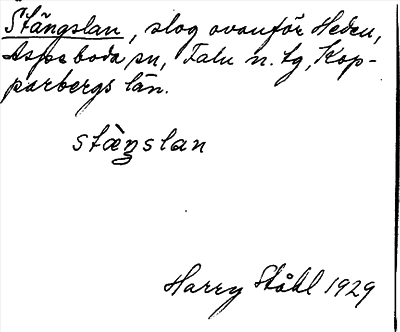 Stängslan, slog ovanför Heden,
Aspeboda sn, Falu n. tg, Kop-
parbergs län.
stàŋslan
Harry Ståhl 1929